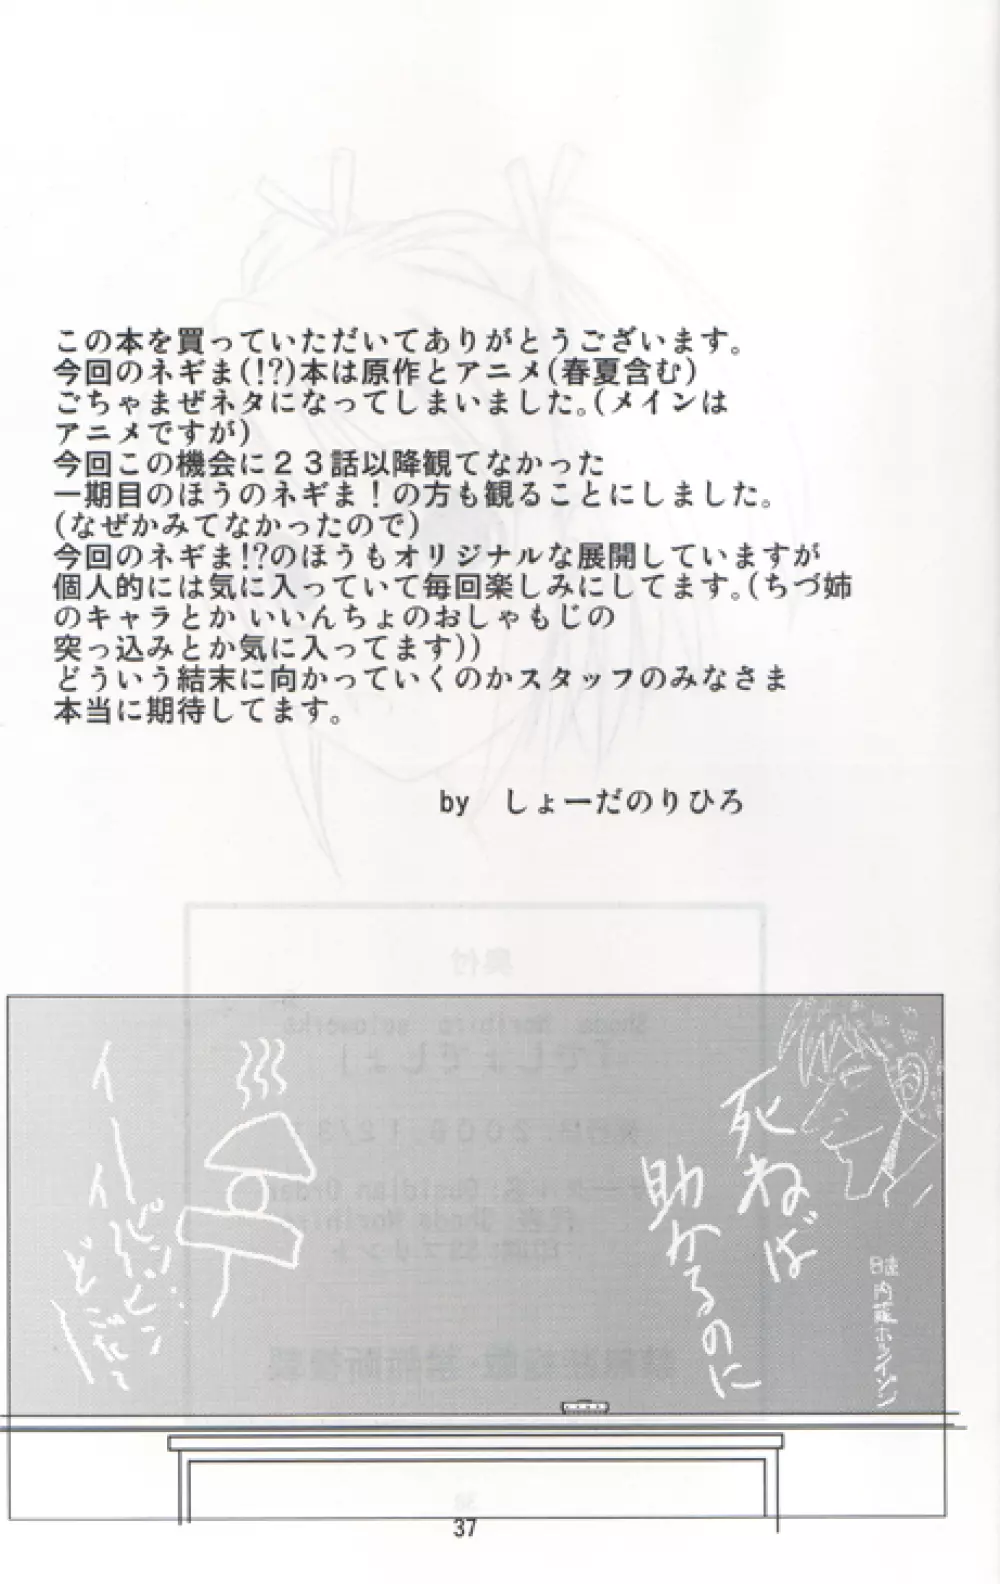 この本を買っていただいてありがとうございます。
今回のネギま(!?)本は原作とアニメ(春夏含む)
ごちゃまぜネタになってしまいました。(メインは
アニメですが)
今回この機会に２３話以降観てなかった
一期目のほうのネギま！の方も観ることにしました。
(なぜかみてなかったので)
今回のネギま!?のほうもオリジナルな展開していますが
個人的には気に入っていて毎回楽しみにしてます。(ちづ姉
のキャラとか いいんちょのおしゃもじの
突っ込みとか気に入ってます))
どういう結末に向かっていくのかスタッフのみなさま
本当に期待してます。
by しょーだのりひろ
死ねば
助かるのに
内藤ホライゾン
イーイーピンピン
どこだって
37